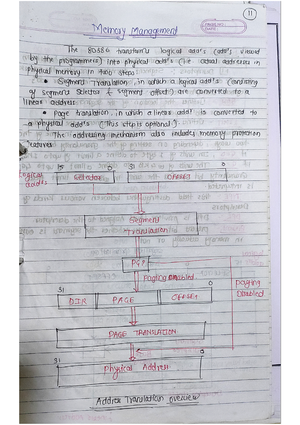 11
Memory Management
The 80386 transforms logical add's (add's viewed
by the programmers) into physical add's (i.e actual addresses in
physical memory in two steps:
• Segment Translation, in which a logical add's (consisting
of segment selector & segment offset) are converted to a
linear address.
• Page translation, in which a linear add's is converted to
a physical add's (This step is optional).
The addressing mechanism also includes memory protection
features.
15 0 31 0
Logical add's Selector OFFSET
Segment
Translation
PG?
Paging Enabled
31 0
DIR PAGE OFFSET
Paging
Disabled
PAGE TRANSLATION
31 0
Physical Address
Address Translation overview